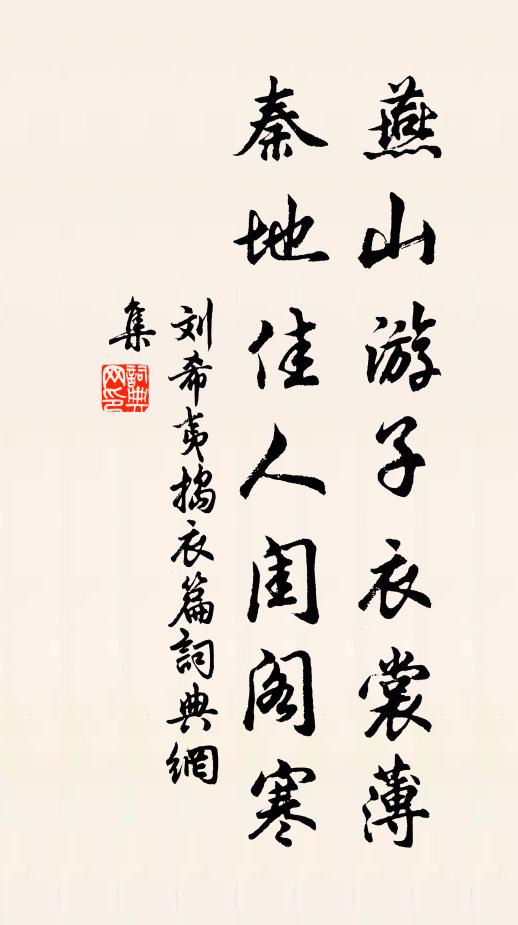 燕山游子衣裳薄
秦地佳人闺阁寒
刘希夷捣衣篇詞典網
集
詞典
网印